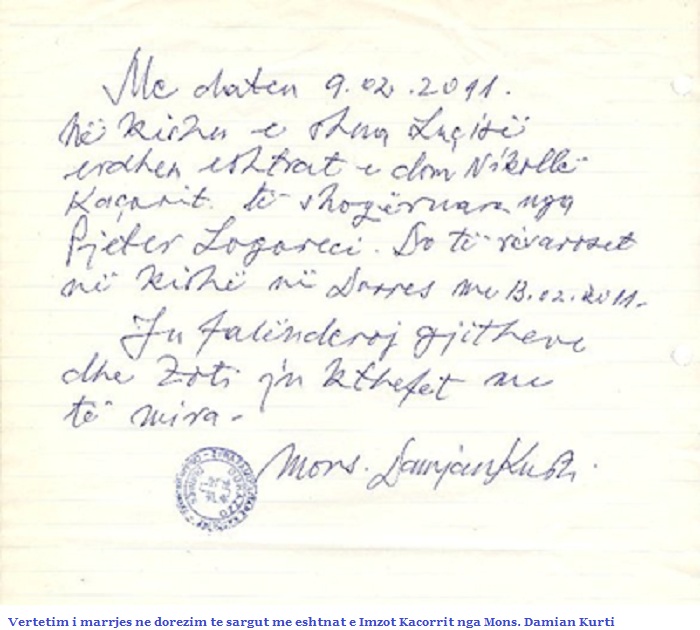 Me daten 9.02.2011.
Në kishën e shna Luçisë
erdhën eshtrat e dom Nikollë
Kaçorit. të shoqëruara nga
Pjeter Logoreci. Do të rivarroset
në kishë në Durres me 13.02.2011.
Ju falënderoj gjitheve
dhe Zoti j'u kthefët me
të mira.
Mons. Damjan Kurti.
DURAZZO
Vertetim i marrjes ne dorezim te sargut me eshtnat e Imzot Kacorrit nga Mons. Damian Kurti